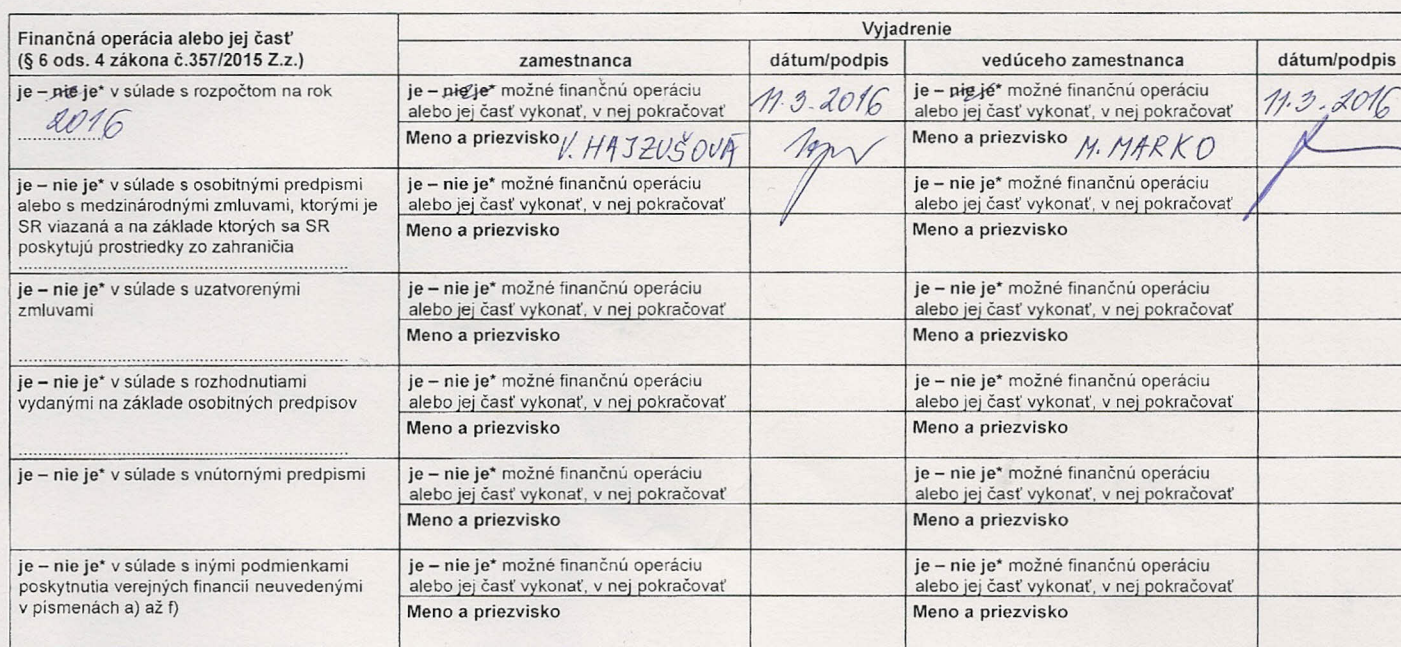 Finančná operácia alebo jej časť
(§ 6 ods. 4 zákona č.357/2015 Z.z.)
Vyjadrenie
zamestnanca
dátum/podpis
vedúceho zamestnanca
dátum/podpis
je – nie je* v súlade s rozpočtom na rok
2016
je – nie je* možné finančnú operáciu
alebo jej časť vykonať, v nej pokračovať
11.3.2016
je – nie je* možné finančnú operáciu
alebo jej časť vykonať, v nej pokračovať
11.3.2016
Meno a priezvisko V. HAJZUŠOVÁ
Meno a priezvisko M. MARKO
je – nie je* v súlade s osobitnými predpismi
alebo s medzinárodnými zmluvami, ktorými je
SR viazaná a na základe ktorých sa SR
poskytujú prostriedky zo zahraničia
je – nie je* možné finančnú operáciu
alebo jej časť vykonať, v nej pokračovať
Meno a priezvisko
je – nie je* možné finančnú operáciu
alebo jej časť vykonať, v nej pokračovať
Meno a priezvisko
je – nie je* v súlade s uzatvorenými
zmluvami
je – nie je* možné finančnú operáciu
alebo jej časť vykonať, v nej pokračovať
Meno a priezvisko
je – nie je* možné finančnú operáciu
alebo jej časť vykonať, v nej pokračovať
Meno a priezvisko
je – nie je* v súlade s rozhodnutiami
vydanými na základe osobitných predpisov
je – nie je* možné finančnú operáciu
alebo jej časť vykonať, v nej pokračovať
Meno a priezvisko
je – nie je* možné finančnú operáciu
alebo jej časť vykonať, v nej pokračovať
Meno a priezvisko
je – nie je* v súlade s vnútornými predpismi
je – nie je* možné finančnú operáciu
alebo jej časť vykonať, v nej pokračovať
Meno a priezvisko
je – nie je* možné finančnú operáciu
alebo jej časť vykonať, v nej pokračovať
Meno a priezvisko
je – nie je* v súlade s inými podmienkami
poskytnutia verejných financií neuvedenými
v písmenách a) až f)
je – nie je* možné finančnú operáciu
alebo jej časť vykonať, v nej pokračovať
Meno a priezvisko
je – nie je* možné finančnú operáciu
alebo jej časť vykonať, v nej pokračovať
Meno a priezvisko